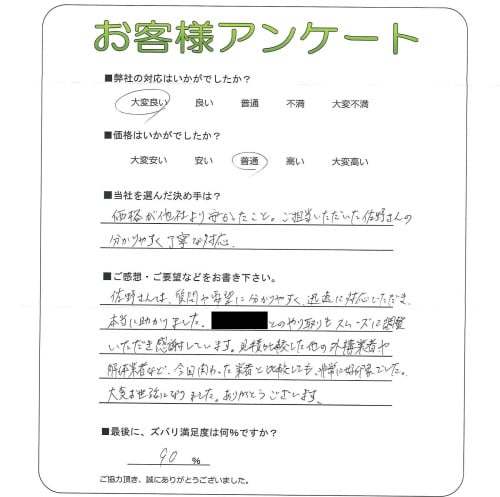 お客様アンケート
■弊社の対応はいかがでしたか？
大変良い 良い 普通 不満 大変不満
■価格はいかがでしたか？
大変安い 安い 普通 高い 大変高い
■当社を選んだ決め手は？
価格が他社より安かったこと。ご担当いただいた佐野さんの
分かりやすく丁寧な対応。
■ご感想・ご要望などをお書き下さい。
佐野さんは、質問や要望に分かりやすく、迅速に対応いただき、
本当に助かりました。 とのやり取りもスムーズに調整
いただき感謝しています。見積比較した他の外構業者や
解体業者など、今回関わった業者と比較しても、非常に好印象でした。
大変お世話になりました。ありがとうございます。
■最後に、ズバリ満足度は何％ですか？
90 %
ご協力頂き、誠にありがとうございました。